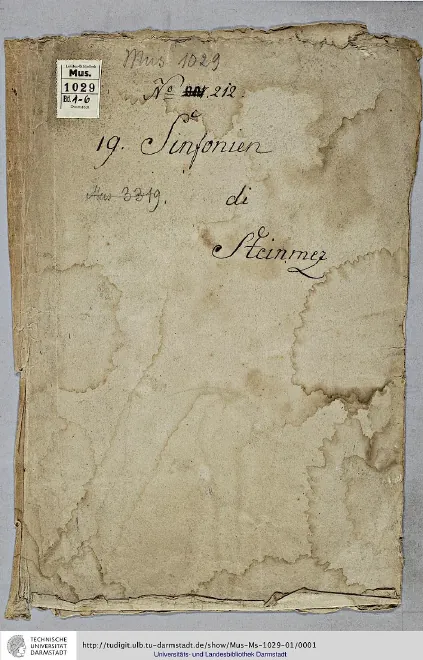 Mus 1029
Landesbibliothek
Mus.
1029
Bd. 1-6
Darmstadt
No 212.
19. Sinfonien
Hs 3319.
di
Steinmez
TECHNISCHE
UNIVERSITÄT
DARMSTADT
http://tudigit.ulb.tu-darmstadt.de/show/Mus-Ms-1029-01/0001
Universitäts- und Landesbibliothek Darmstadt